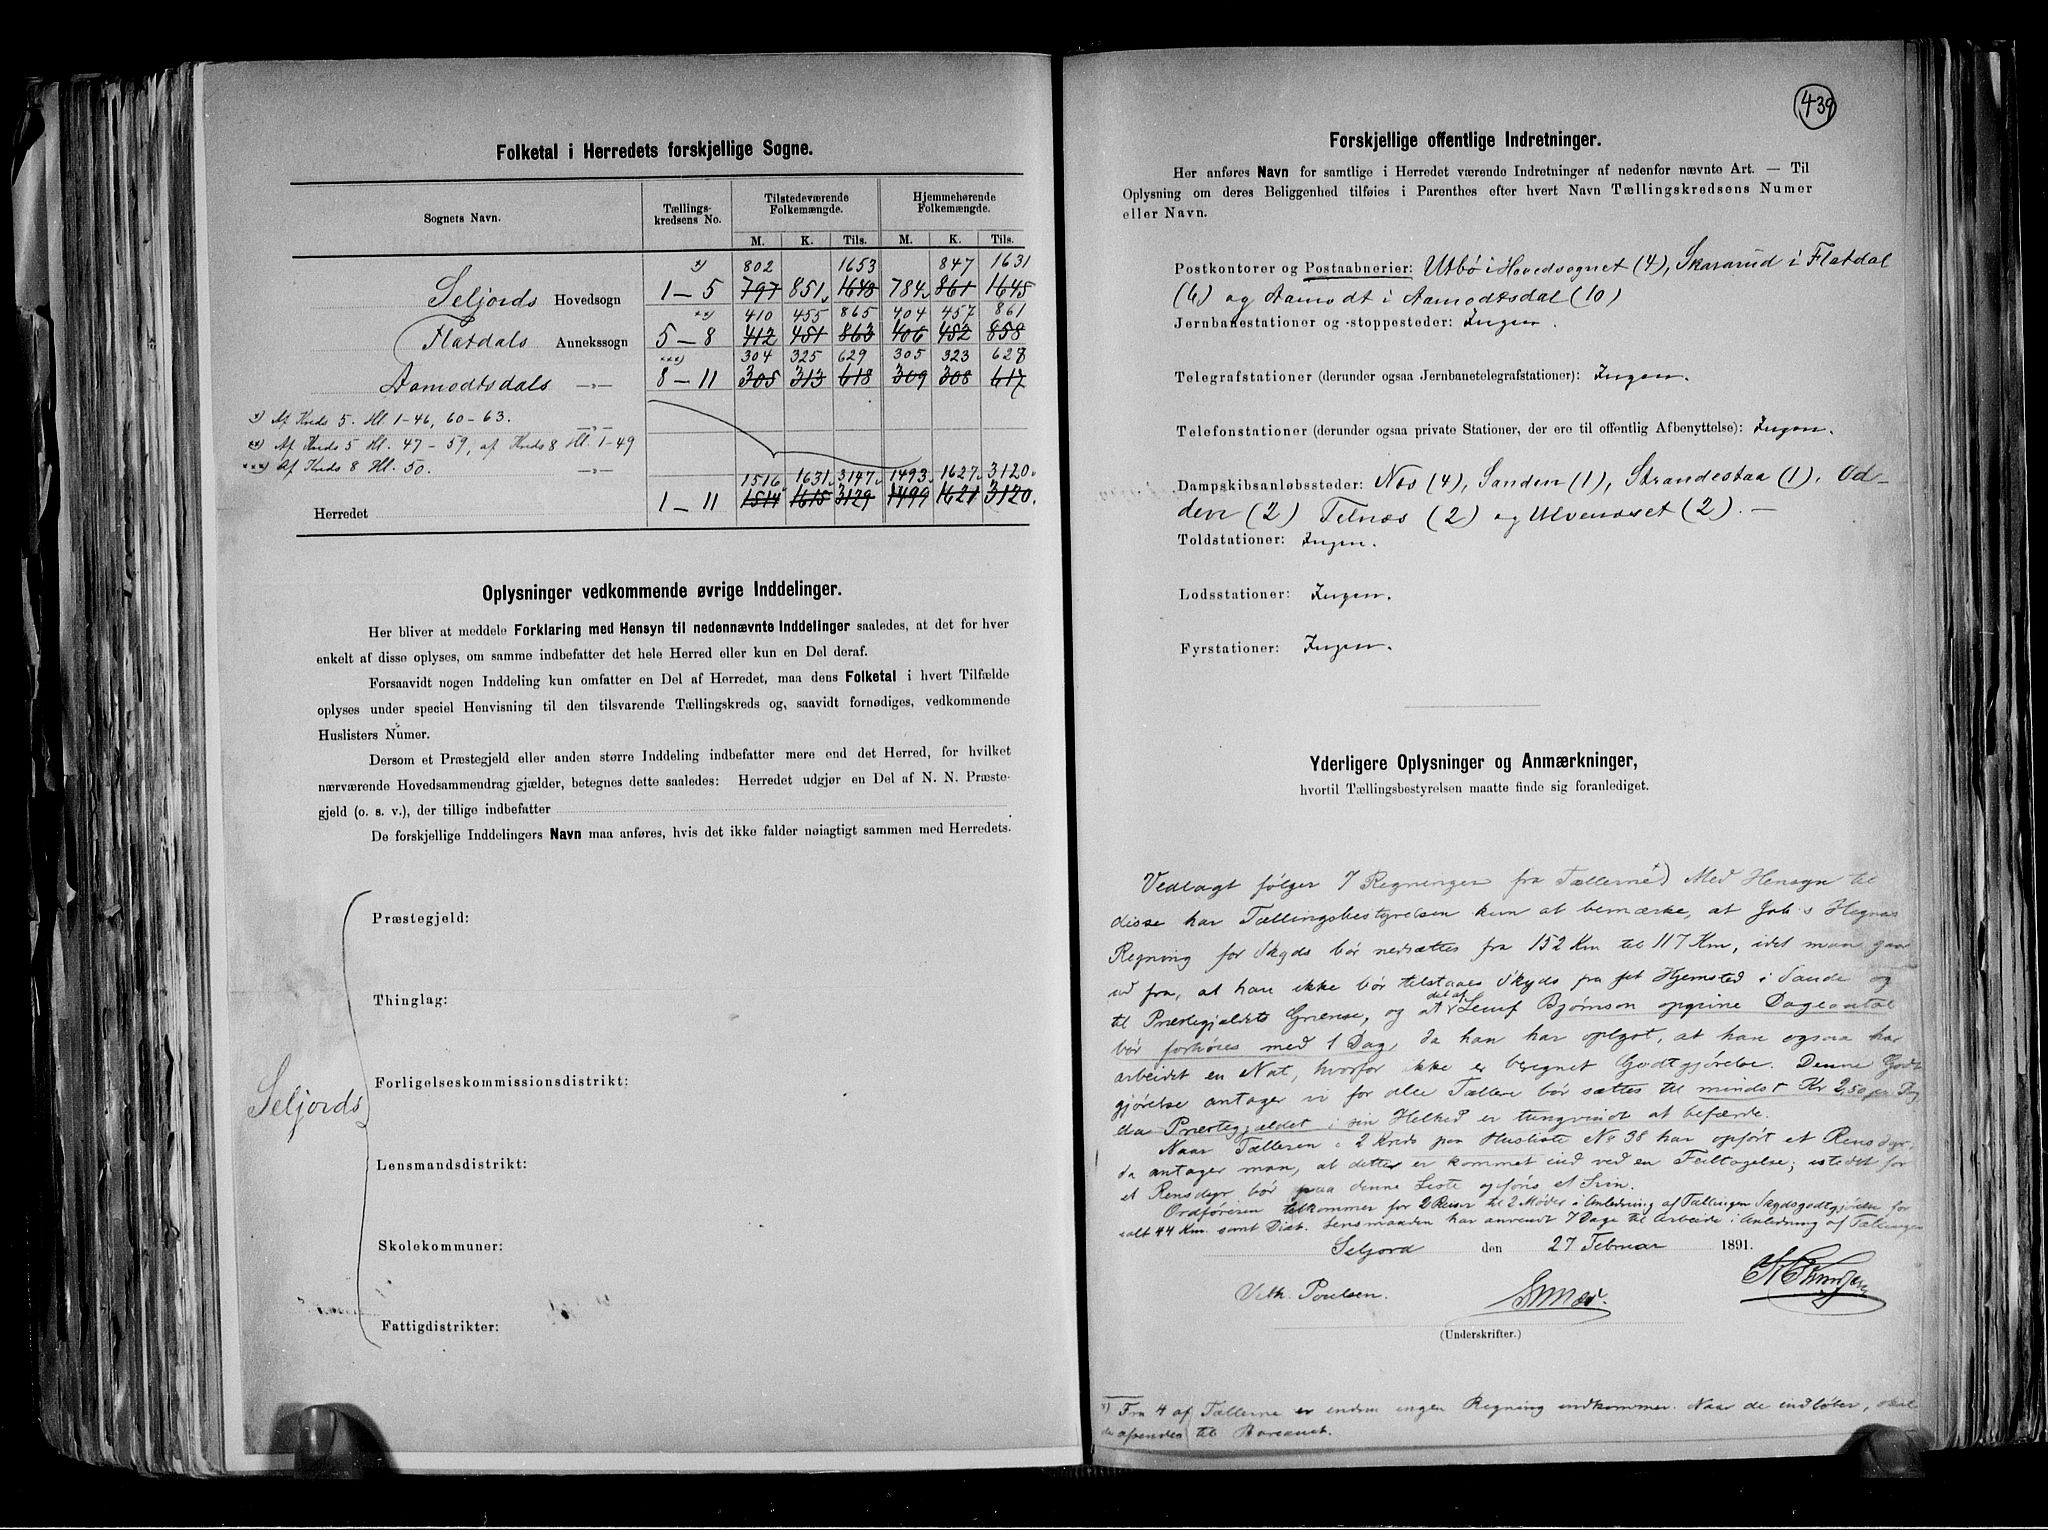 Folketal i Herredets forskjellige Sogne.
Sognets Navn.
Tællings-
kredsens No.
Tilstedeværende
Folkemængde.
Hjemmehørende
Folkemængde.
M. K. Tils. M. K. Tils.
*) 802 1653 847 1631
Seljords Hovedsogn 1 – 5 797 851 1648 784 861 1645
**) 410 455 865 404 457 861
Flatdals Annekssogn 5 – 8 412 451 863 406 452 858
***) 304 325 629 305 323 628
Aamodtsdals —„— 8 – 11 305 313 618 309 308 617
*) Af Kreds 5. Hl. 1-46, 60-63.
**) Af Kreds 5 Hl. 47-59, af Kreds 8 Hl. 1-49
***) Af Kreds 8 Hl. 50. —„—
1516 1631 3147 1493 1627 3120
Herredet 1 – 11 1514 1615 3129 1499 1621 3120.
Oplysninger vedkommende øvrige Inddelinger.
Her bliver at meddele Forklaring med Hensyn til nedennævnte Inddelinger saaledes, at det for hver
enkelt af disse oplyses, om samme indbefatter det hele Herred eller kun en Del deraf.
Forsaavidt nogen Inddeling kun omfatter en Del af Herredet, maa dens Folketal i hvert Tilfælde
oplyses under speciel Henvisning til den tilsvarende Tællingskreds og, saavidt fornødiges, vedkommende
Huslisters Numer.
Dersom et Præstegjeld eller anden større Inddeling indbefatter mere end det Herred, for hvilket
nærværende Hovedsammendrag gjælder, betegnes dette saaledes: Herredet udgjør en Del af N. N. Præste-
gjeld (o. s. v.), der tillige indbefatter
De forskjellige Inddelingers Navn maa anføres, hvis det ikke falder nøiagtigt sammen med Herredets.
Præstegjeld:
Thinglag:
Forligelseskommissionsdistrikt:
Seljords
Lensmandsdistrikt:
Skolekommuner:
Fattigdistrikter:
439
Forskjellige offentlige Indretninger.
Her anføres Navn for samtlige i Herredet værende Indretninger af nedenfor nævnte Art. — Til
Oplysning om deres Beliggenhed tilføies i Parenthes efter hvert Navn Tællingskredsens Numer
eller Navn.
Postkontorer og Postaabnerier: Utbø i Hovedsognet (4), Skararud i Flatdal
(6) og Aamodt i Aamodtsdal (10)
Jernbanestationer og -stoppesteder: Ingen.
Telegrafstationer (derunder ogsaa Jernbanetelegrafstationer): Ingen.
Telefonstationer (derunder ogsaa private Stationer, der ere til offentlig Afbenyttelse): Ingen.
Dampskibsanløbssteder: Nes (4), Sanden (1), Strandestaa (1), Od-
den (2) Telnæs (2) og Ulvenæset (2). —
Toldstationer: Ingen.
Lodsstationer: Ingen.
Fyrstationer: Ingen.
Yderligere Oplysninger og Anmærkninger,
hvortil Tællingsbestyrelsen maatte finde sig foranlediget.
Vedlagt følger 7 Regninger fra Tællerne*) Med Hensyn til
disse har Tællingsbestyrelsen kun at bemærke, at Joh.s Hegnas
Regning for Skyds bør nedsættes fra 152 Km til 117 Km, idet man gaar
ud fra, at han ikke bør tilstaaes Skyds fra sit Hjemsted i Sande og
til Præstegjældets Grænse, og at det af Leuf Bjørnson opgivne Dageantal
bør forhøies med 1 Dag, da han har oplyst, at han ogsaa har
arbeidet en Nat, hvorfor ikke er beregnet Godtgjørelse. Denne Godt-
gjørelse antager vi for alle Tællere bør sættes til mindst Kr 2,50 pr Dag
da Præstegjældet i sin Helhed er tungvindt at befærde.
Naar Tælleren i 2 Kreds paa Husliste No 38 har opført et Rensdyr,
da antager man, at dette er kommet ind ved en Feiltagelse; istedet for
et Rensdyr bør paa denne Liste opføris et Svin.
Ordføreren tilkommer for 2 Reiser til 2 Møder i Anledning af Tællingen Skydsgodtgjørelse for
ialt 44 Km. samt Diæt. Lensmanden har anvendt 7 Dage til Arbeide i Anledning af Tællingen
Seljord den 27 Februar 1891.
Vilh. Poulsen.
(Underskrifter.)
*) Fra 4 af Tællerne er endnu ingen Regning indkommen. Naar de indløber, skal
de afsendes til Bureauet.